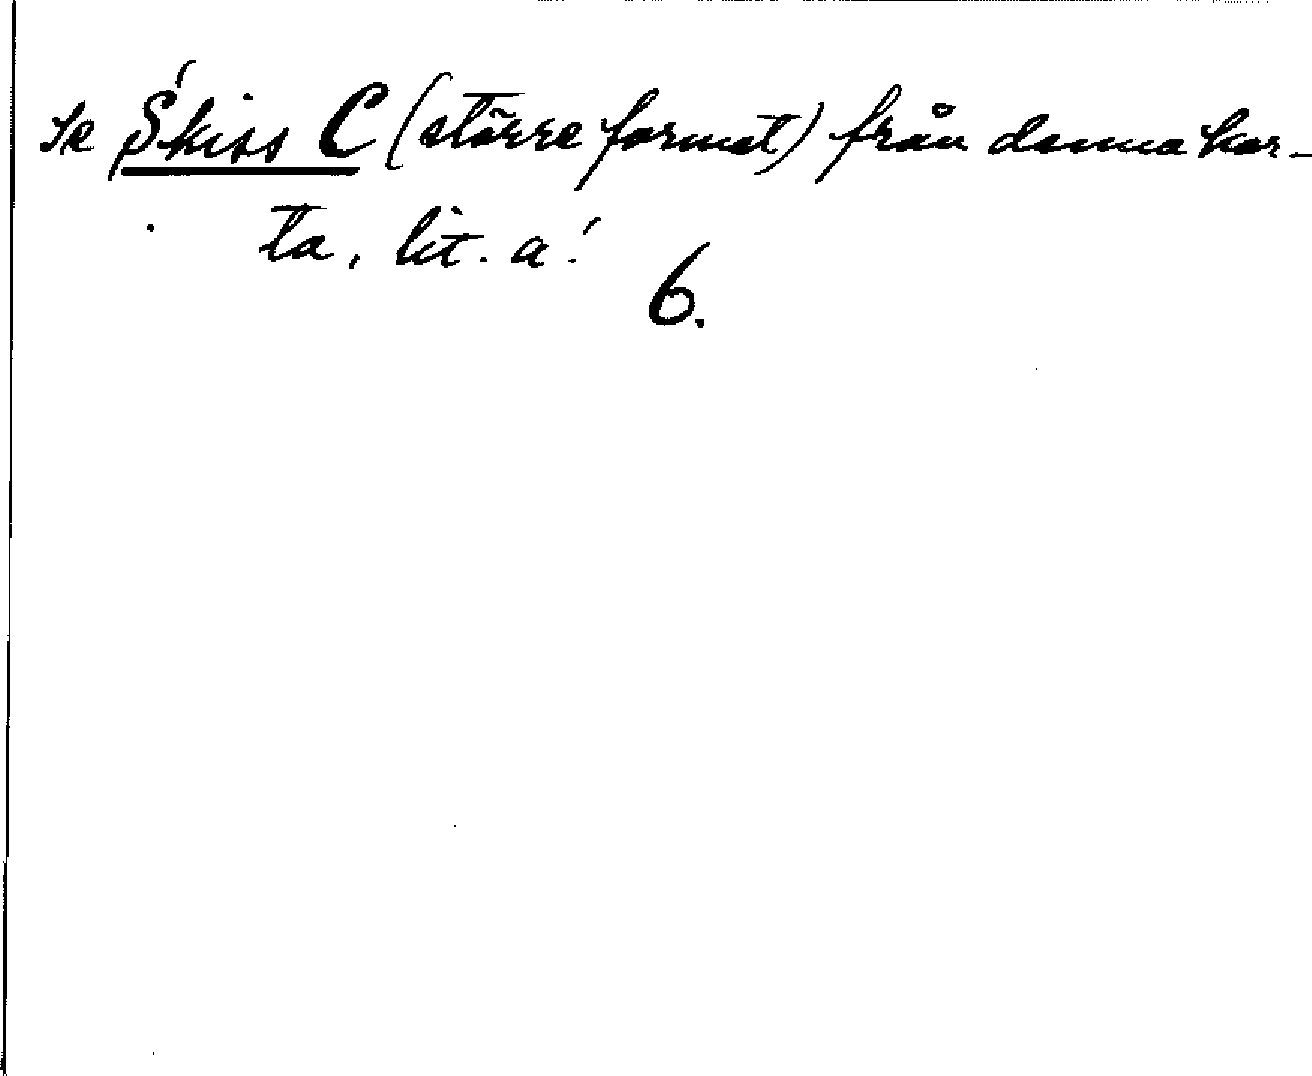 Se Skiss C (större format) från denna kar-
ta, lit. a!
6.